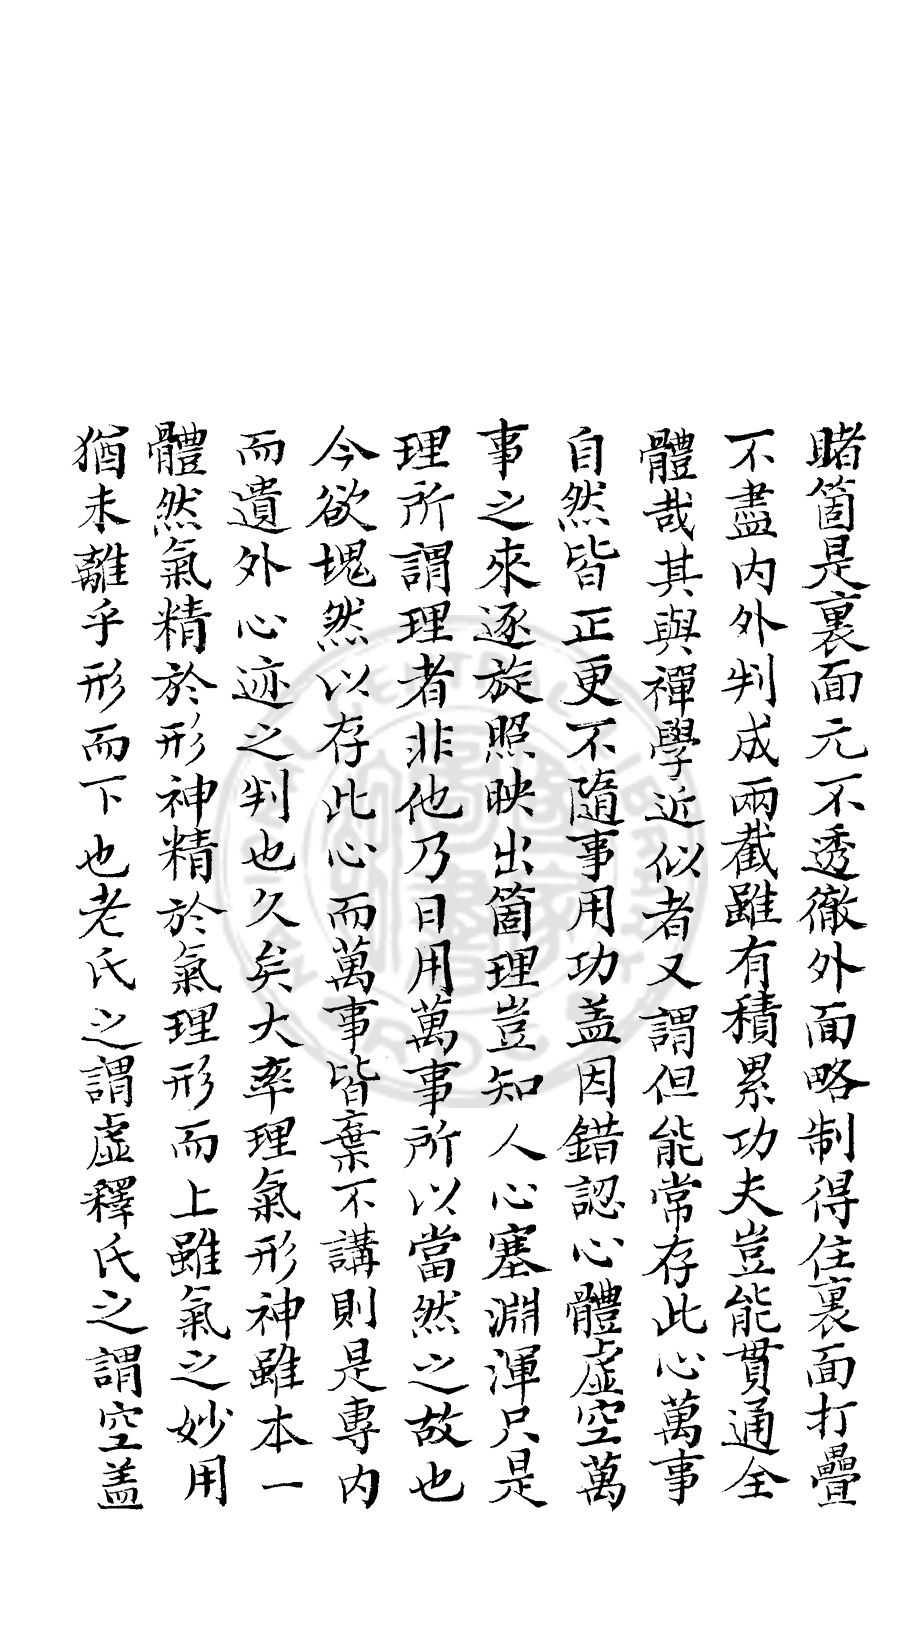 睹箇是裏面元不透徹外面略制得住裏面打疊
不盡内外判成兩截雖有積累功夫豈能貫通全
體哉其與禪學近似者又謂但能常存此心萬事
自然皆正更不隨事用功盖因錯認心體虛空萬
事之來逐旋照映出箇理豈知人心塞淵渾只是
理所謂理者非他乃日用萬事所以當然之故也
今欲塊然以存此心而萬事皆棄不講則是專内
而遺外心迹之判也久矣大率理氣形神雖本一
體然氣精於形神精於氣理形而上雖氣之妙用
猶未離乎形而下也老氏之謂虛釋氏之謂空盖